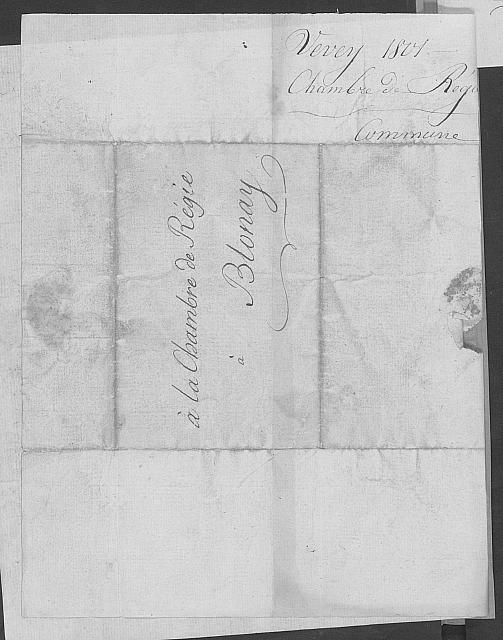 Vevey 1801
Chambre de Régie
Commune
à la Chambre de Régie
à
Blonay